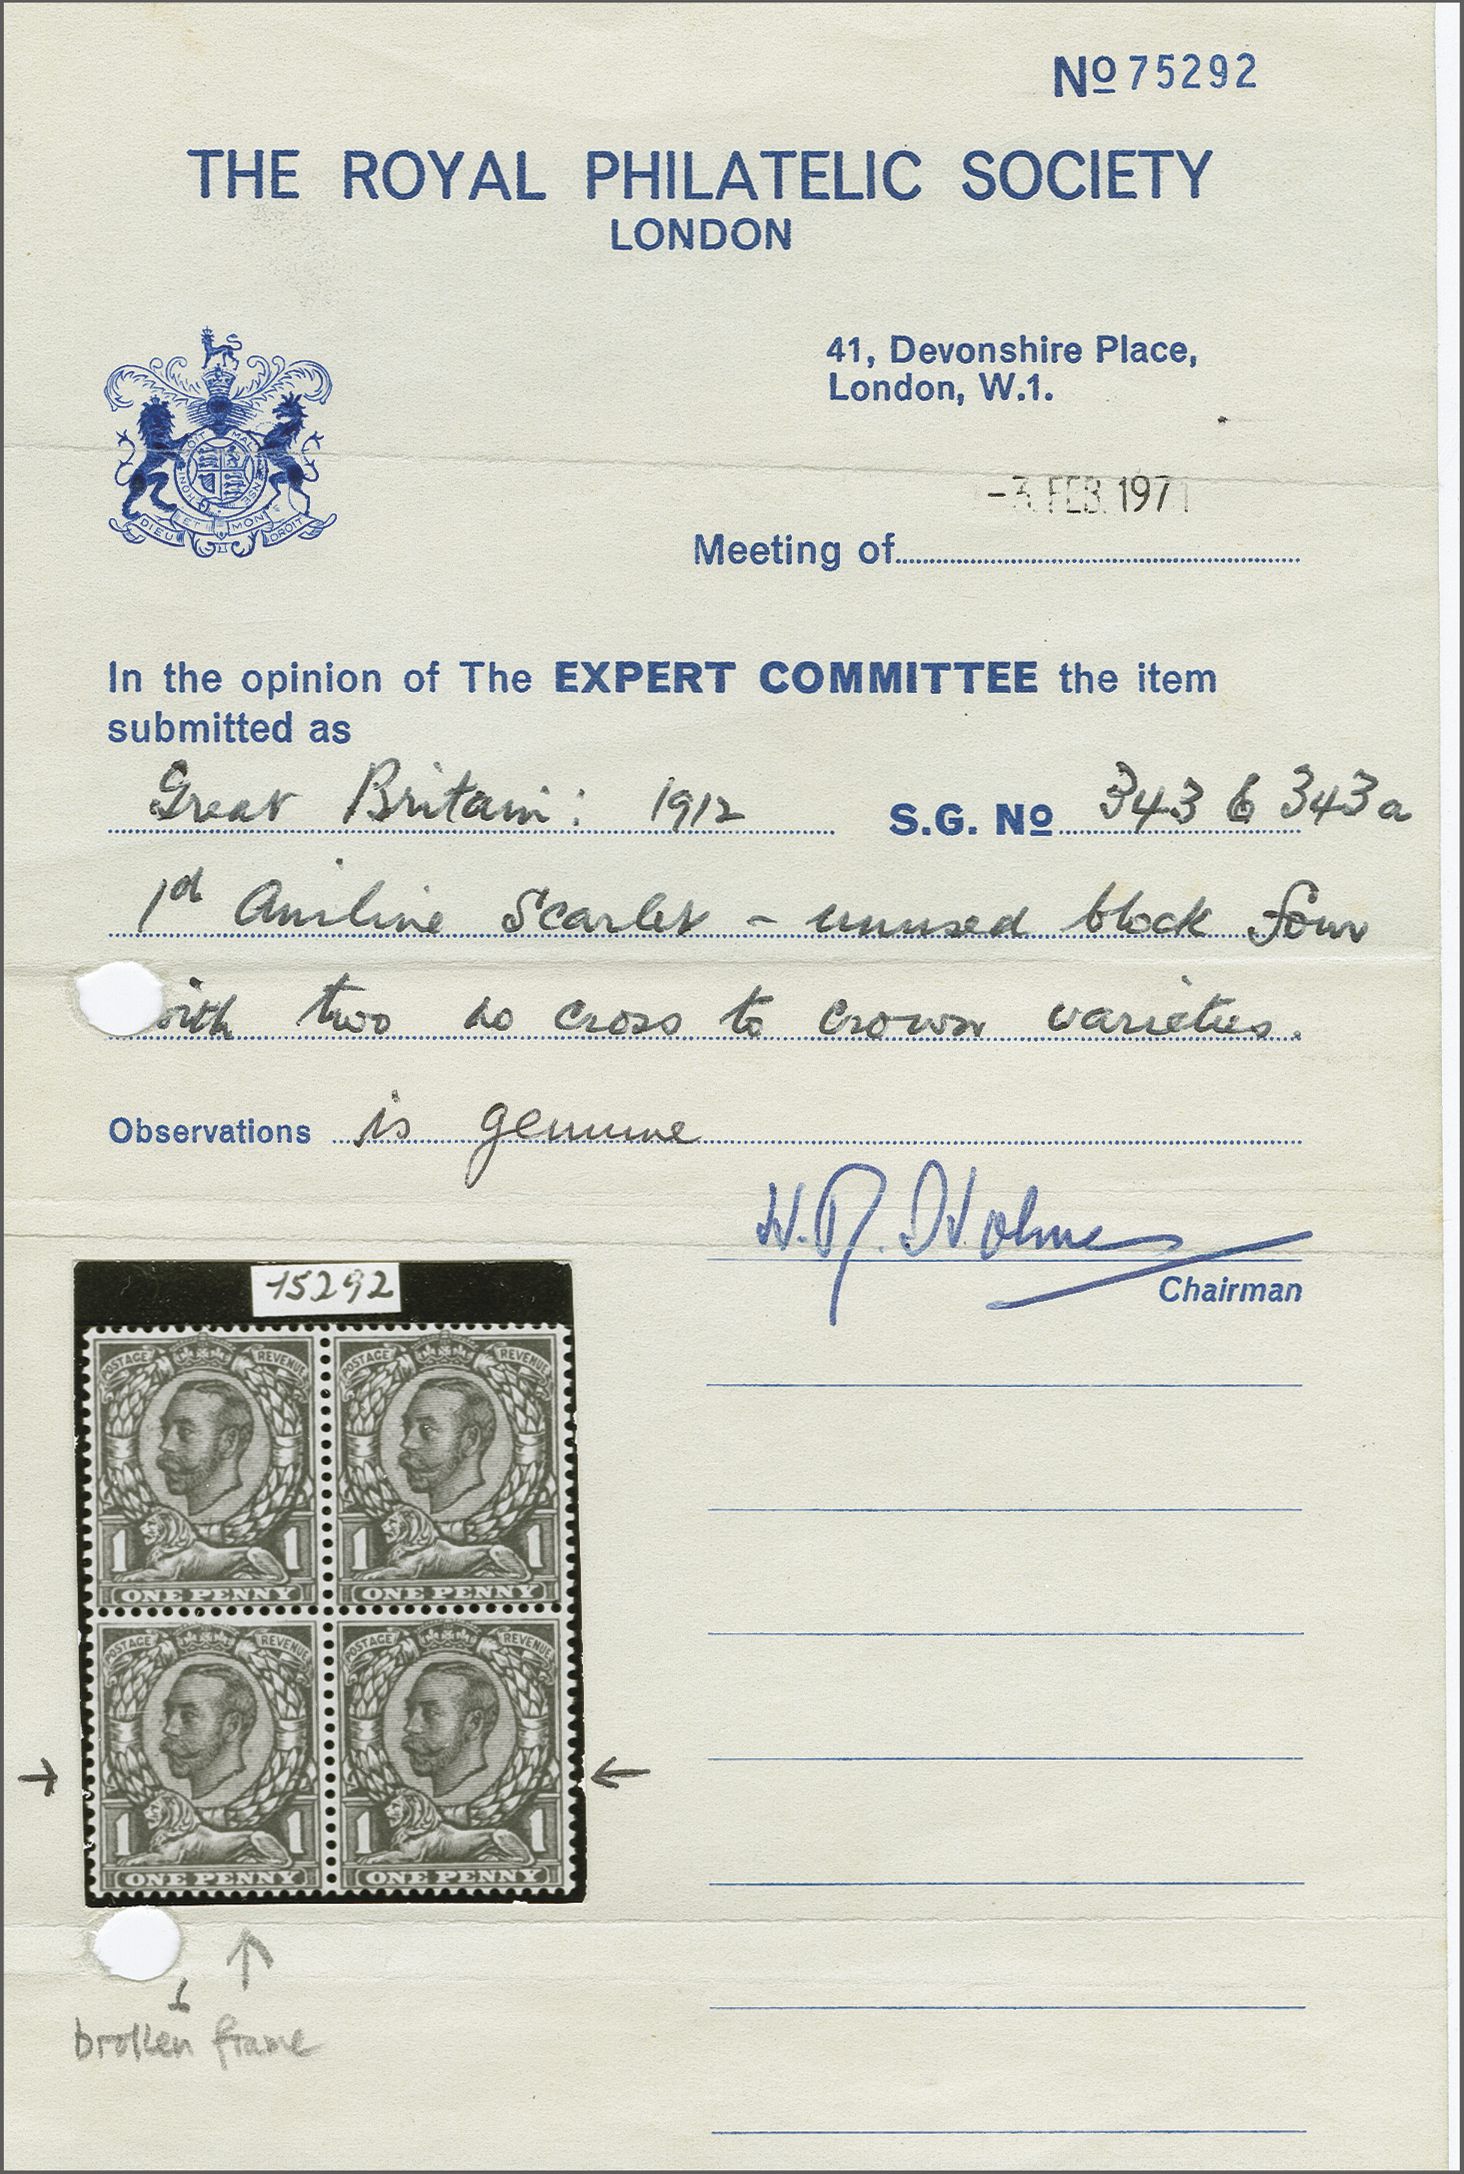 Nº 75292
THE ROYAL PHILATELIC SOCIETY
LONDON
41, Devonshire Place,
London, W.1.
HONI SOIT MAL Y PENSE
DIEU ET MON DROIT
-3 FEB 1971
Meeting of
In the opinion of The EXPERT COMMITTEE the item
submitted as
Great Britain: 1912 S.G. Nº 343 & 343a
1d Aniline Scarlet - unused block four
with two no cross to crown varieties.
Observations is genuine
H.R. Holmes
Chairman
75292
POSTAGE REVENUE POSTAGE REVENUE
1 1 1 1
ONE PENNY ONE PENNY
POSTAGE REVENUE POSTAGE REVENUE
1 1 1 1
ONE PENNY ONE PENNY
broken frame